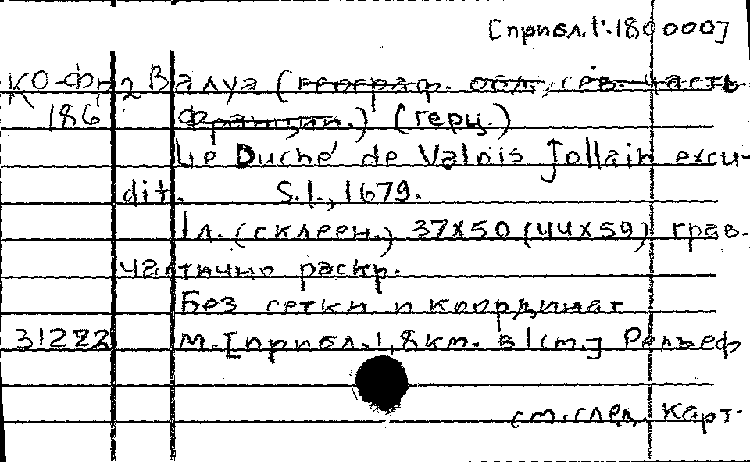 [прибл. 1:180000]
КО-Фн 2 Валуа (географ. обл., сев. часть
186 Франции.) (герц.)
Le Duché de Valois Jollain excu-
dit. S.l., 1679.
1 л. (склеен.) 37x50 (44x59) грав.
частично раскр.
Без сетки и координат
31222 М. [прибл. 1,8 км. в 1 см.] Рельеф
см. след. карт.